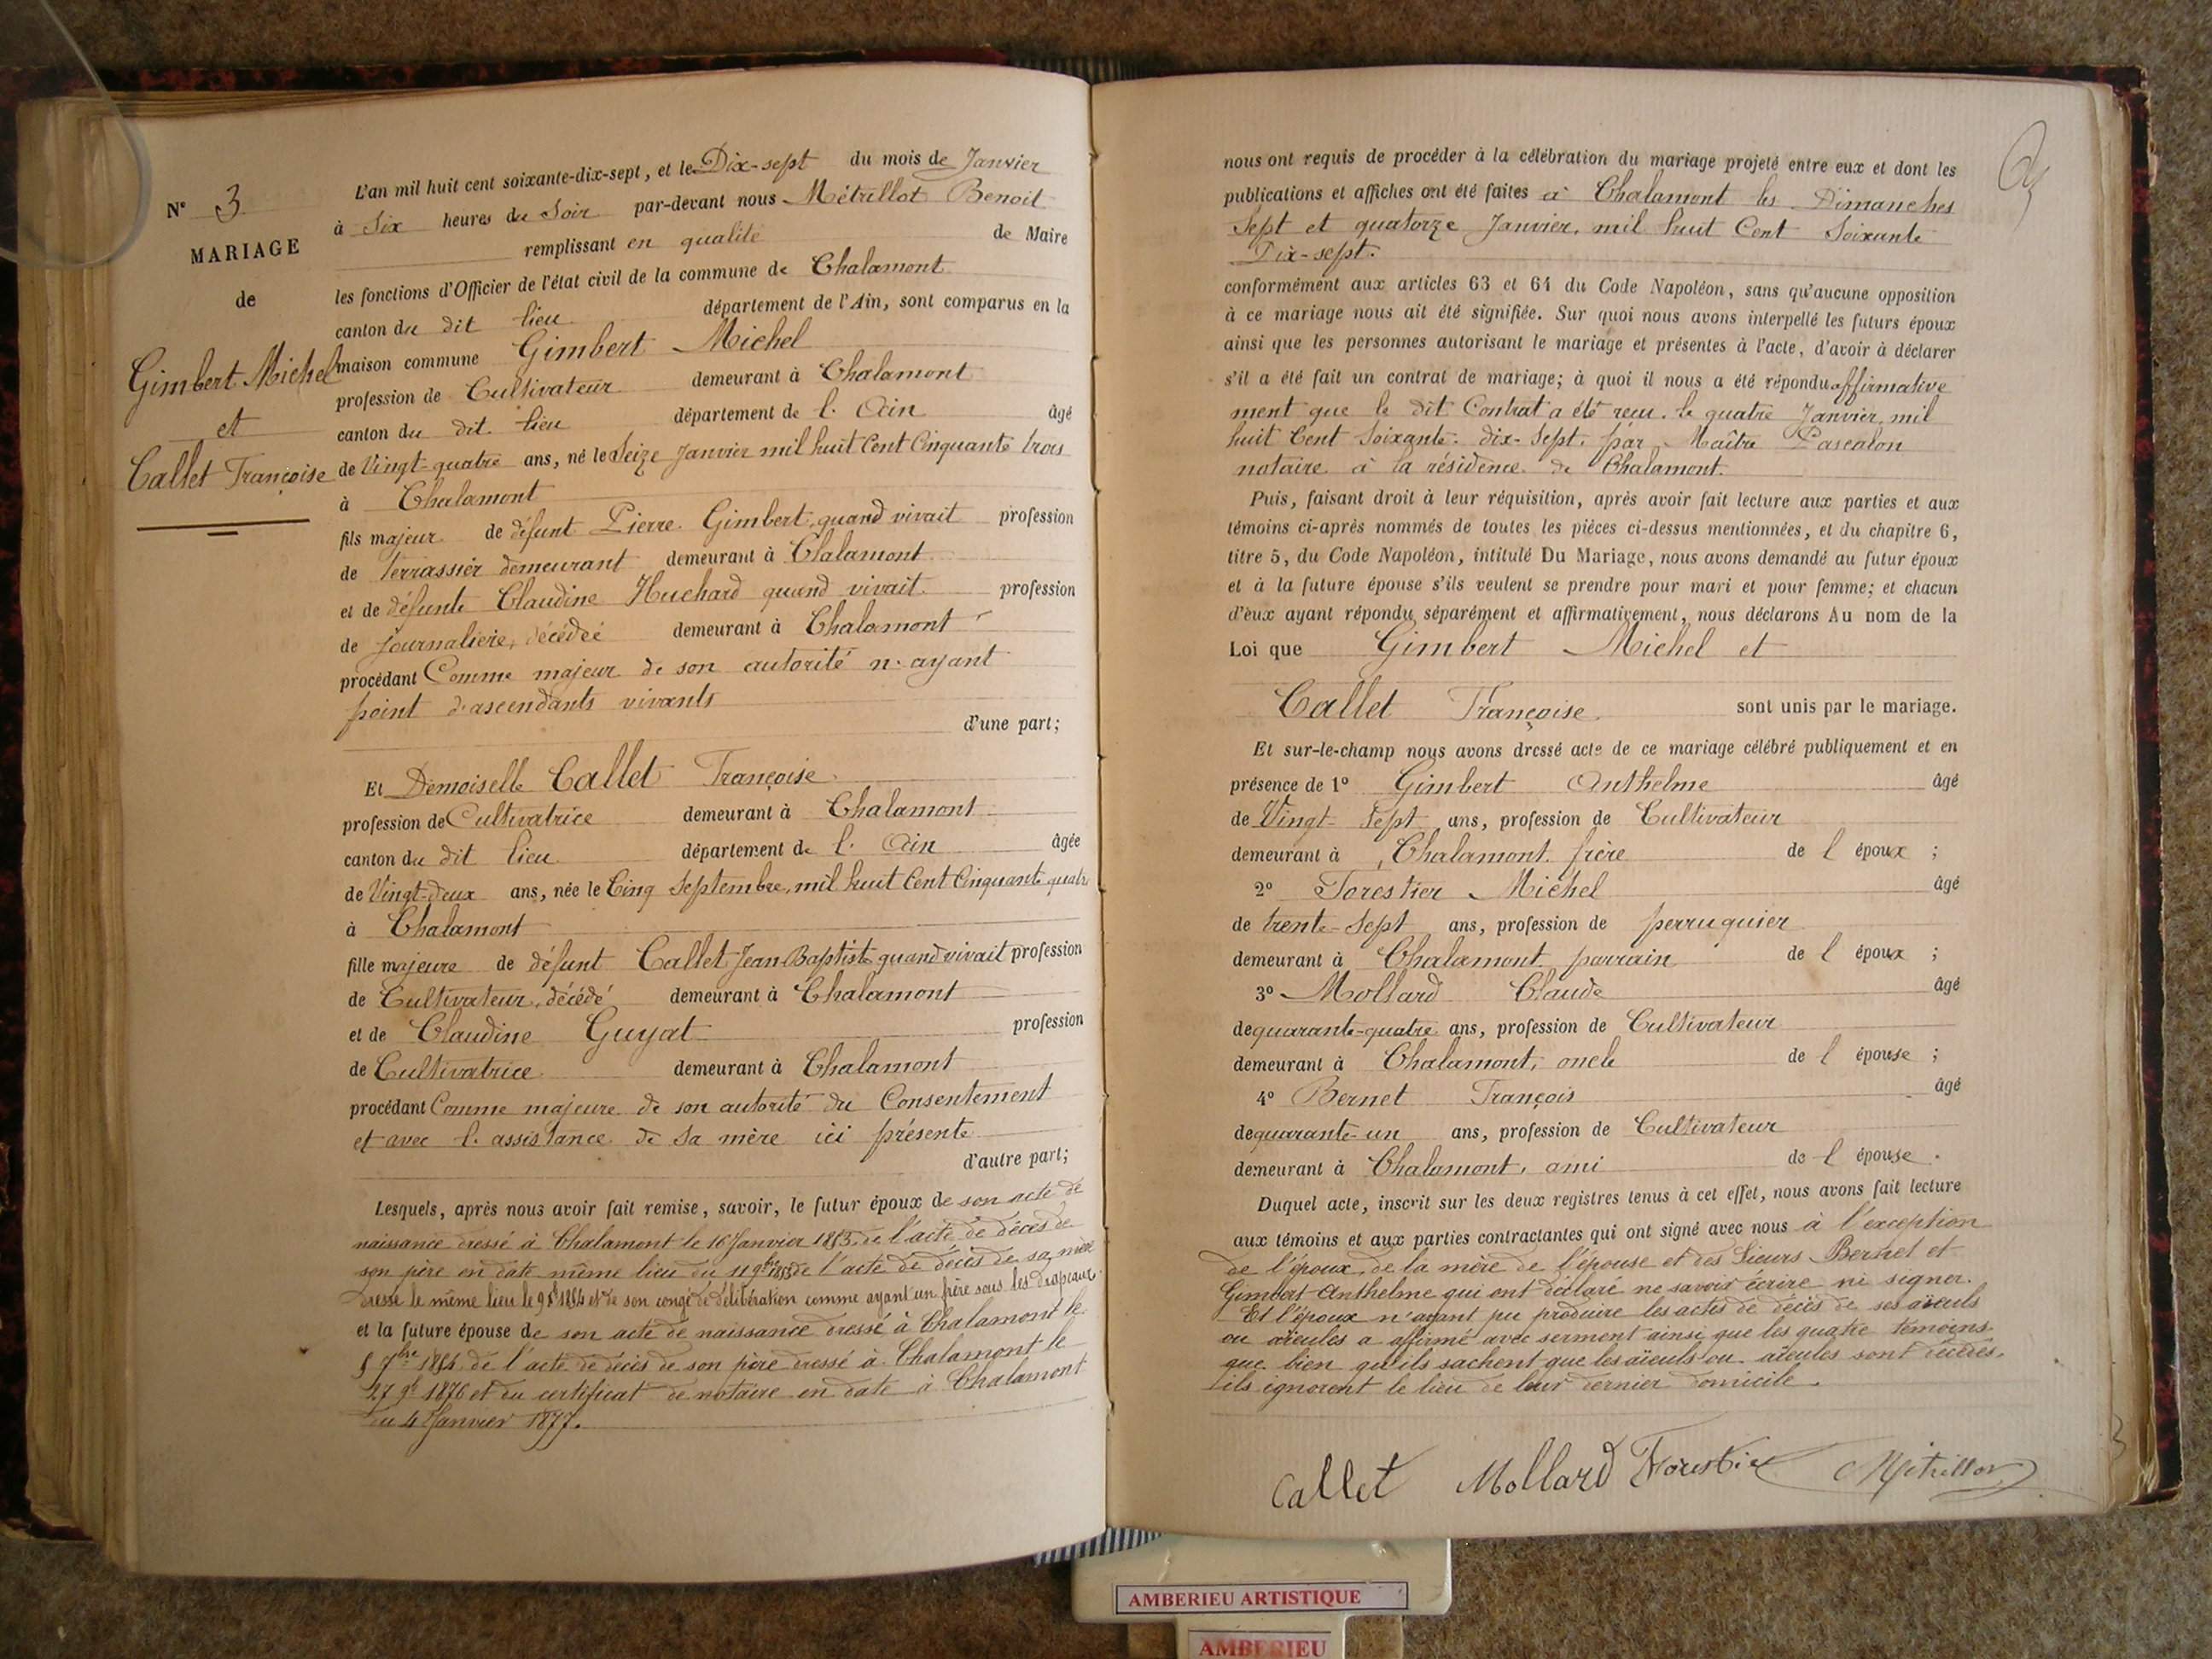 N° 3
MARIAGE
de
Gimbert Michel
et
Callet Françoise
L'an mil huit cent soixante-dix-sept, et le Dix-sept du mois de Janvier
à Six heures du Soir par-devant nous Métrillot Benoit
remplissant en qualité de Maire
les fonctions d'Officier de l'état civil de la commune de Chalamont
canton du dit lieu département de l'Ain, sont comparus en la
maison commune Gimbert Michel
profession de Cultivateur demeurant à Chalamont
canton du dit lieu département de l'Ain âgé
de Vingt-quatre ans, né le Seize Janvier mil huit Cent Cinquante trois
à Chalamont
fils majeur de défunt Pierre Gimbert, quand vivait profession
de terrassier demeurant demeurant à Chalamont
et de défunte Claudine Huchard quand vivait profession
de journalière, décédée demeurant à Chalamont
procédant Comme majeur de son autorité n'ayant
point d'ascendants vivants
d'une part;
Et Demoiselle Callet Françoise
profession de Cultivatrice demeurant à Chalamont
canton du dit lieu département de l'Ain âgée
de Vingt-deux ans, née le Cinq Septembre, mil huit Cent Cinquante quatre
à Chalamont
fille majeure de défunt Callet Jean-Baptiste quand vivait profession
de Cultivateur, décédé demeurant à Chalamont
et de Claudine Guyat profession
de Cultivatrice demeurant à Chalamont
procédant Comme majeure de son autorité du Consentement
et avec l'assistance de Sa mère ici présente
d'autre part;
Lesquels, après nous avoir fait remise, savoir, le futur époux de son acte de
naissance dressé à Chalamont le 16 Janvier 1853, de l'acte de décès de
son père en date même lieu du 11 9bre de l'acte de décès de sa mère
dressé le même lieu le 1854 et de son congé de délibération comme ayant un frère sous les drapeaux
et la future épouse de son acte de naissance dressé à Chalamont le
5 7bre 1854, de l'acte de décès de son père dressé à Chalamont le
27 9b 1876 et du certificat de notaire en date à Chalamont
du 4 Janvier 1877.
nous ont requis de procéder à la célébration du mariage projeté entre eux et dont les
publications et affiches ont été faites à Chalamont les Dimanches
Sept et quatorze Janvier, mil huit Cent Soixante
Dix-sept.
conformément aux articles 63 et 64 du Code Napoléon, sans qu'aucune opposition
à ce mariage nous ait été signifiée. Sur quoi nous avons interpellé les futurs époux
ainsi que les personnes autorisant le mariage et présentes à l'acte, d'avoir à déclarer
s'il a été fait un contrat de mariage; à quoi il nous a été répondu affirmative
ment que le dit Contrat a été reçu le quatre Janvier, mil
huit Cent Soixante-dix-Sept, par Maître Pascalon
notaire à la résidence de Chalamont.
Puis, faisant droit à leur réquisition, après avoir fait lecture aux parties et aux
témoins ci-après nommés de toutes les pièces ci-dessus mentionnées, et du chapitre 6,
titre 5, du Code Napoléon, intitulé Du Mariage, nous avons demandé au futur époux
et à la future épouse s'ils veulent se prendre pour mari et pour femme; et chacun
d'eux ayant répondu séparément et affirmativement, nous déclarons Au nom de la
Loi que Gimbert Michel et
Callet Françoise sont unis par le mariage.
Et sur-le-champ nous avons dressé acte de ce mariage célébré publiquement et en
présence de 1° Gimbert Anthelme âgé
de Vingt-Sept ans, profession de Cultivateur
demeurant à Chalamont frère de l'époux ;
2° Forestier Michel âgé
de trente-Sept ans, profession de perruquier
demeurant à Chalamont parrain de l'époux ;
3° Mollard Claude âgé
de quarante-quatre ans, profession de Cultivateur
demeurant à Chalamont, oncle de l'épouse ;
4° Bernet François âgé
de quarante-un ans, profession de Cultivateur
demeurant à Chalamont, ami de l'épouse.
Duquel acte, inscrit sur les deux registres tenus à cet effet, nous avons fait lecture
aux témoins et aux parties contractantes qui ont signé avec nous à l'exception
de l'époux, de la mère de l'épouse et des Sieurs Bernet et
Gimbert Anthelme qui ont déclaré ne savoir écrire ni signer.
Et l'époux n'ayant pu produire les actes de décès de ses aïeuls
ou aïeules a affirmé avec serment ainsi que les quatre témoins
que bien qu'ils sachent que les aïeuls ou aïeules sont décédés,
ils ignorent le lieu de leur dernier domicile.
Callet Mollard Forestier Métrillot
AMBERIEU ARTISTIQUE
AMBERIEU